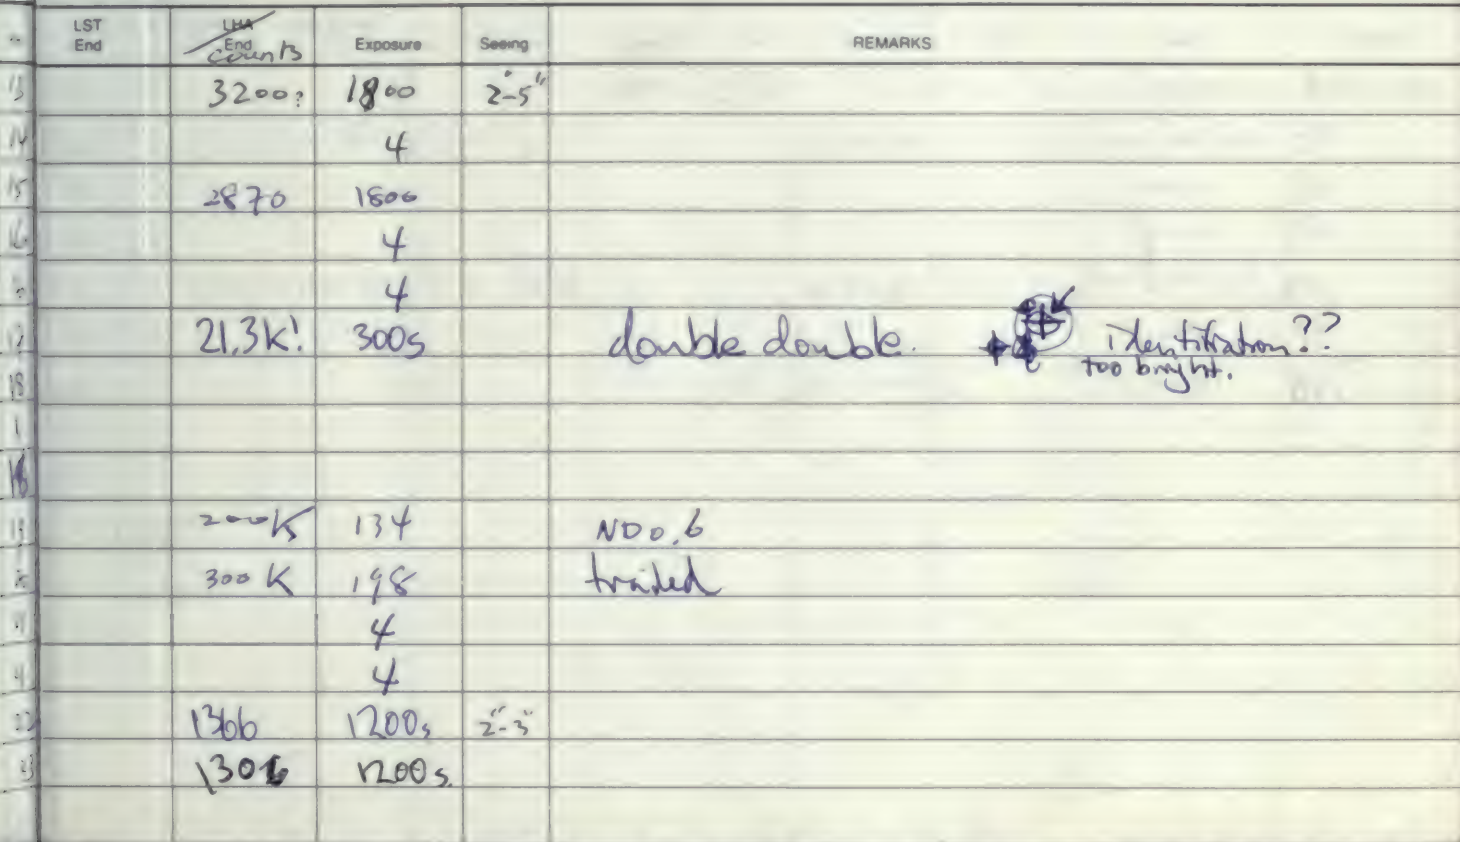 LST End LHA End counts Exposure Seeing REMARKS
13 3200? 1800 2"-5"
14 4
15 2870 1800
16 4
4
17 21.3K! 300s double double. identification??
too bright.
18
19 200K 134 ND 0.6
300K 198 trailed
4
4
22 1366 1200s 2"-3"
1200s.